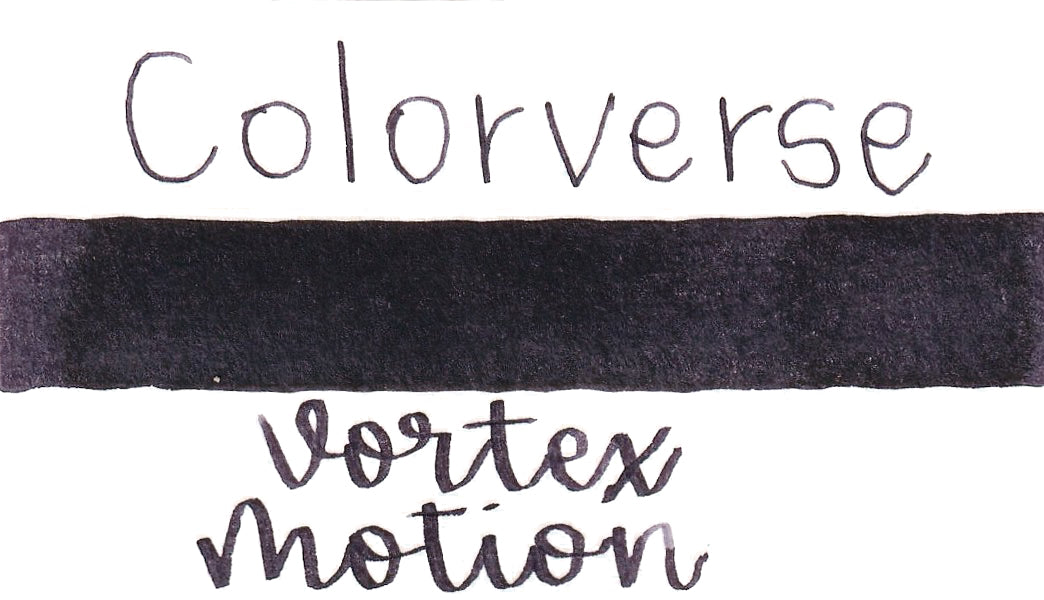 Colorverse
Vortex
Motion